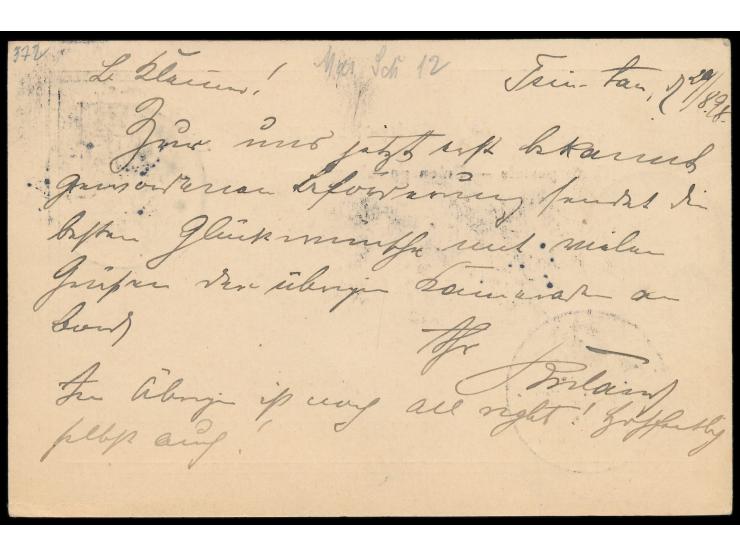 372
Mgn Sch 12
L. Klaun!
Tsin-tau, d 29/8.98.
Zur uns jetzt erst bekannt
gewordenen Beförderung sendet die
besten Glückwünsche mit vielen
Grüßen der übrigen Kameraden an
Bord
Ihr
Im Übrigen ist noch all right! Hoffentlich
selbst auch!